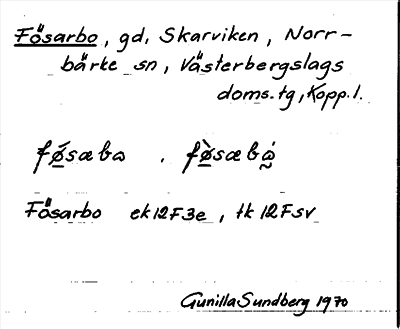 Fösarbo, gd, Skarviken, Norr-
bärke sn, Västerbergslags
doms.tg, Kopp.l.
fǿsæbɷ . fø̀sæbɷ̣́
Fösarbo ek 12F3e, tk 12Fsv
Gunilla Sundberg 1970